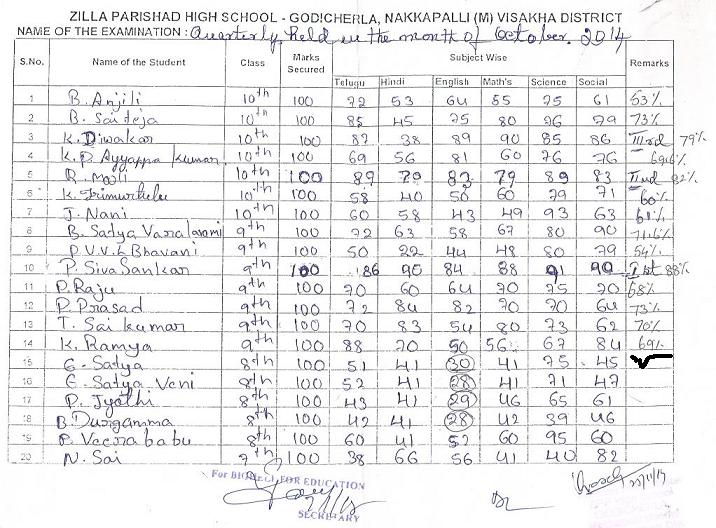 ZILLA PARISHAD HIGH SCHOOL - GODICHERLA, NAKKAPALLI (M) VISAKHA DISTRICT
NAME OF THE EXAMINATION : Quarterly, held in the month of October. 2014
S.No. Name of the Student Class Marks Secured Subject Wise Remarks
Telugu Hindi English Math's Science Social
1 B. Anjili 10th 100 72 53 64 55 75 61 63%
2 B. Saiteja 10th 100 85 45 75 80 76 79 73%
3 K. Diwakar 10th 100 87 38 89 90 85 86 IIIrd 79%
4 K. D. Ayyappa kumar 10th 100 69 56 81 60 76 76 69.6%
5 R. Mouli 10th 100 89 70 83 79 89 83 IInd 82%
6 K. Trimurthulu 10th 100 58 40 50 60 79 71 60%
7 J. Nani 10th 100 60 58 43 49 93 63 61%
8 B. Satya Varalaxmi 9th 100 72 63 58 67 80 90 71.6%
9 P.V.V.L Bhavani 9th 100 50 22 44 48 80 79 54%
10 P. Siva Sankar 9th 100 86 90 84 88 91 90 Ist 88%
11 P. Raju 9th 100 70 60 64 70 75 70 68%
12 P. Prasad 9th 100 72 84 82 70 70 64 73%
13 T. Sai kumar 9th 100 70 83 54 80 73 62 70%
14 K. Ramya 9th 100 88 70 50 56 67 84 69%
15 G. Satya 8th 100 51 41 30 41 75 45
16 G. Satya Veni 8th 100 52 41 28 41 71 47
17 P. Jyothi 8th 100 43 41 29 46 65 61
18 B. Durgamma 8th 100 42 41 28 42 39 46
19 P. Veerababu 8th 100 60 41 52 60 95 60
20 N. Sai 7th 100 38 66 56 41 40 82
FOR EDUCATION
SECRETARY